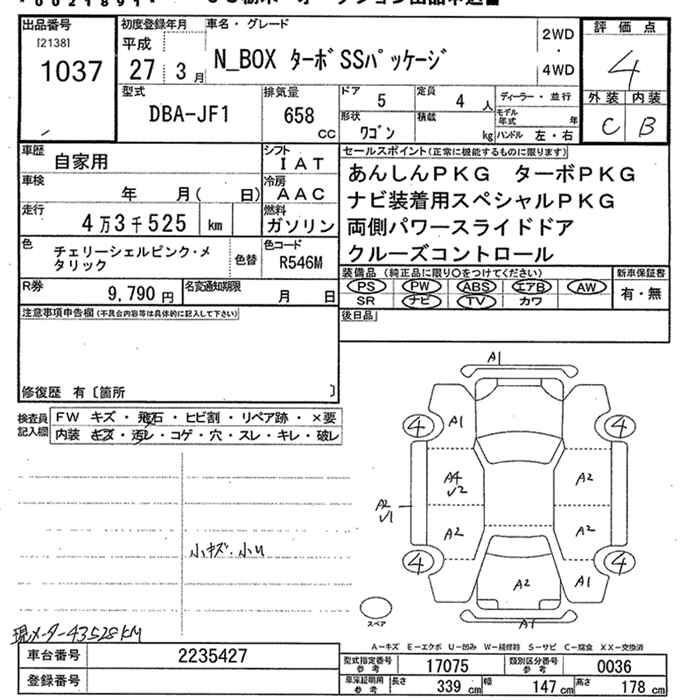 *0021891*
出品番号 [2138] 1037
初度登録年月 平成 27 3月
車名・グレード N_BOX ターボSSパッケージ
2WD・4WD
評価点 4
外装 内装
C B
型式 DBA-JF1
排気量 658 CC
ドア 5 定員 4人
形状 ワゴン 積載 kg
ディーラー・並行
モデル年式 年
ハンドル 左・右
車歴 自家用
シフト IAT
車検 年 月( 日)
冷房 AAC
走行 4万3千525 km
燃料 ガソリン
色 チェリーシェルピンク・メタリック
色替
色コード R546M
R券 9,790円
名変通知期限 月 日
セールスポイント(正常に機能するものに限ります)
あんしんPKG ターボPKG
ナビ装着用スペシャルPKG
両側パワースライドドア
クルーズコントロール
装備品 (純正品に限り○をつけてください)
新車保証書
PS PW ABS エアB AW
SR ナビ TV カワ
有・無
後日品
注意事項申告欄(不具合内容等は具体的に記入して下さい)
修復歴 有〔箇所 〕
検査員記入欄
FW キズ・飛石・ヒビ割・リペア跡・×要
内装 キズ・汚レ・コゲ・穴・スレ・キレ・破レ
小キズ・小U
現メーター43528KM
A1
4 A1 4
A4 U2 A2
A2 U1
A2 A2
4 A2 A1 4
A1
スペア
A-キズ E-エクボ U-凹み W-補修跡 S-サビ C-腐食 XX-交換済
車台番号 2235427
登録番号
型式指定番号 参考 17075
類別区分番号 参考 0036
車庫証明用 参考 長さ 339 cm 幅 147 cm 高さ 178 cm